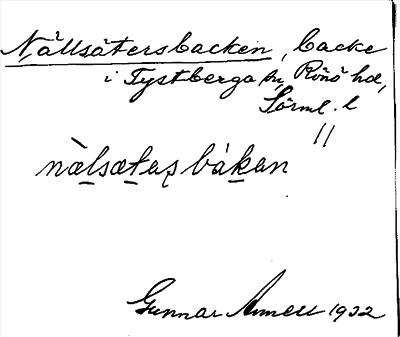 Nällsätersbacken, backe
i Tystberga sn, Rönö hd,
Sörml. l
//
nàlsætas bákan
Gunnar Annell 1932